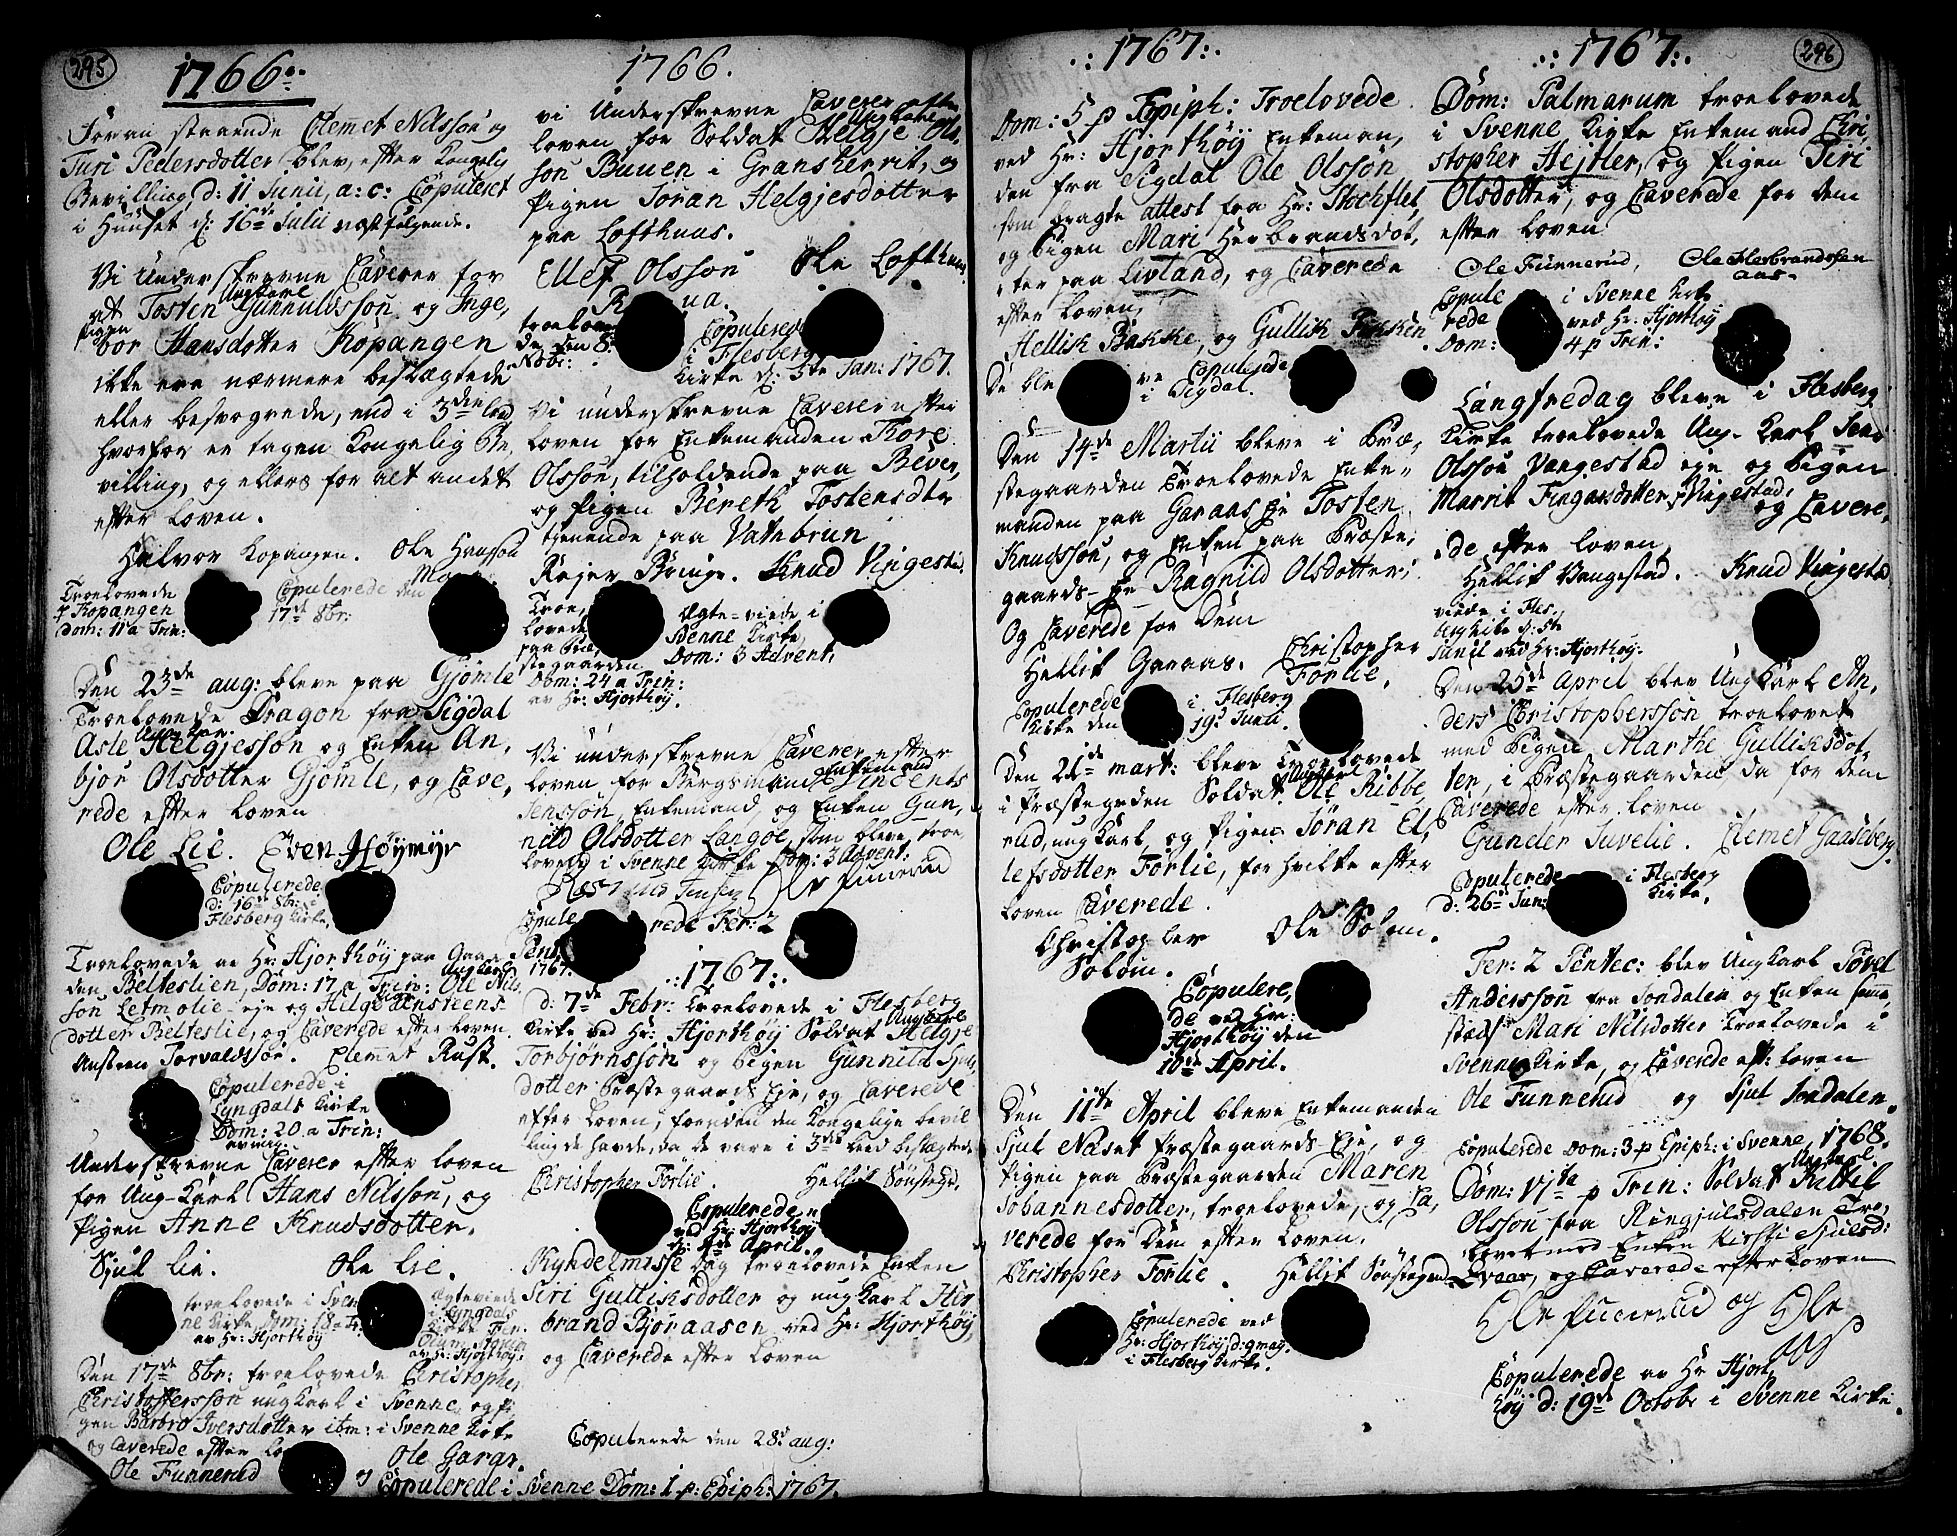 295
1766.
Foran staaende Clemet Nilsson og
Turi Pedersdotter blev, efter Kongelig
Bevilling, d: 11 Junii, a: c: Copuleret
i Huuset d: 16de Julii næstfølgende.
Vi Underskrevne Caverer for
at Ungkarl Tosten Gunnuldsson og Inge,
bor Pigen Hansdotter Kopangen
ikke ere nærmere beslægtede
eller besvogrede, end i 3die Leed
hvorfor er tagen Kongelig Be,
villing, og ellers for alt andet
efter Loven.
Halvor Kopangen. Ole Hansson
Troelovede
p Kopangen
Dom: 11 a Trin:
Copulerede den
17de 8br:
Den 23de aug: bleve paa Gjømle
Troelovede Dragon fra Sigdal
Asle Ungkar. Helgjesson og Enken An,
bjør Olsdotter Gjømle, og Cave,
rede efter Loven
Ole Lie. Even Høymyr
Copulerede
d: 16de 8br: i
Flesberg Kirke,
Troelovede av Hr: Hjorthøy paa Gaar
den Belteslien, Dom: 17 a Trin: Ungkarl Ole Nils
son Letmolie-eje og Helge Austeens
dotter Belteslie, og Caverede efter Loven.
Austeen Torvaldsson. Clemet Rust.
Copulerede i
Lyngdals Kirke
Dom: 20 a Trin:
Underskrevne Caverer efter Loven
for Ung-Karl Hans Nilsson, og
Pigen Anne Knudsdotter.
Sjul Lie. Ole Lie.
troelovede i Sven
ne Kirke, Dom: 18 a T
av Hr: Hjorthøy
Ægteviede
i Lyngdals
Kirke
av Hr: Hjorthøy:
Den 17de 8br: troelovede Christopher
Christoffersson ungkarl i Svenne, og Pi
gen Barbro Iversdotter ibm: i Svenne Kirke
og Caverede efter Lo
Ole Funnerud Ole Garaas.
Copulerede i Svenne Dom: 1 p: Epiph: 1767.
1766.
Vi Underskrevne Caverer efter
Loven for Soldat Ungkarl Helgje Ols
son Buuen i Gransherrit, og
Pigen Joran Helgjesdotter
paa Lofthuus.
Ellef Olsson Ole Lofthuus
troelove
de den 8
Nobr:
Copulerede
i Flesberg
Kirke d: 3te Jan: 1767.
Vi underskrevne Caverer efter
Loven for Enkemanden Tore
Olsson, tilholdende paa Bever,
og Pigen Bereth Tostensdtr
tjenende paa Vatnbrun
Rejer Bringe. Knud Vingestad.
Troe,
lovede
paa Præ,
stegaarden
Dom: 24 a Trin:
av Hr: Hjorthøy.
Ægte-viede i
Svenne Kirke,
Dom: 3 Advent,
Vi underskrevne Caverer efter
Loven for Bergsmand Enkemand Vincents
Jensson, Enkemand, og Enken Gun,
nild Olsdotter Langoe, som bleve troe,
lovede i Svenne Kirke Dom: 3 Advent:
Rasmus Jensen Ole Funnerud
Copule rede Fer: 2
Pent
1767.
1767.
d: 7de Febr: Troelovede i Flesberg
Kirke ved Hr: Hjorthøy Soldat Ungkarl Helgje
Torbjørnsson og Pigen Gunnild Sjuls
dotter Præstegaards Eje, og Caverede
efter Loven, foruden den Kongelige bevil
ling de havde, da de vare i 3die Leed beslægtede
Christopher Førlie. Hellik Sønstegd.
Copulerede
ved Hr: Hjorthøy
d: 4de April.
Kyndelmisse Dag troelovede Enken
Siri Gulliksdotter og ungkarl Her
brand Bjoraasen ved Hr: Hjorthøy,
og Caverede efter Loven
Copulerede den 28de aug:
1767.
Dom: 5 p Epiph: Troelovede
ved Hr: Hjorthøy Enkeman,
den fra Sigdal Ole Olsson
som bragte attest fra Hr: Stockflet,
og Pigen Mari Herbrandsdot,
ter paa Livland, og Caverede
efter Loven,
Hellik Bakke, og Gullik Bekken.
De ble ve Copulerede
i Sigdal.
Den 14de Martii bleve i Præ,
stegaarden Troelovede Enke,
manden paa Garaas Eje Tosten
Knudsson, og Enken paa Præste,
gaards-Eje Ragnild Olsdotter,
Og Caverede for Dem
Hellik Garaas. Christopher
Førlie.
Copulerede i Flesberg
Kirke den 19de Junii.
Den 21de mart: bleve Troelovede
i Præstegrden Soldat Ungkarl Ole Ribbe,
rud, ungkarl, og Pigen Jøran El,
lefsdotter Førlie, for hvilke efter
Loven Caverede.
Christopher Ole Solem.
Solem.
Copulere,
de ved Hr:
Hjorthøy den
10de April.
Den 11te April bleve Enkemanden
Sjul Næset Præstegaards-Eje, og
Pigen paa Præstegaarden Maren
Johannesdotter, troelovede, og Ca,
verede for Dem efter Loven.
Christopher Førlie. Hellik Sønstegrd.
Copulerede ved
Hr: Hjorthøy d: 9 may.
i Flesberg kirke.
296
1767.
Dom: Palmarum troelovede
i Svenne Kirke Enkemand Chri
stopher Hejtler, og Pigen Siri
Olsdotter, og Caverede for dem
efter Loven
Ole Funnerud, Ole Herbrandssen
aas.
Copule
rede
Dom:
i Svenne Kirke
ved Hr: Hjorthøy
4 p Trin:
Langfredag bleve i Flesberg
Kirke troelovede Ung-Karl Jens
Olsson Vangestad eje og Pigen
Marrit Fingarsdotter Vingestad, og Cavere,
de efter Loven
Hellik Vangestad. Knud Vingestad
viede i Fles,
berg Kirke d: 5te
Junii ved Hr: Hjorthøy.
Den 25de April blev Ungkarl An,
ders Christophersson troelovet
med Pigen Marthe Gulliksdot,
ter, i Præstegaarden da for Dem
Caverede efter Loven
Gunder Juvelie. Clemet Gaaseberg.
Copulerede i Flesberg
d: 26de Jun: Kirke.
Fer: 2 Pentec: blev Ungkarl Tovel
Andersson fra Jondalen og Enken samme,
steds Mari Nilsdotter Troelovede i
Svenne Kirke, og Caverede eft: Loven
Ole Funnerud og Sjul Jondalen.
Copulerede Dom: 3 p Epiph: i Svenne, 1768.
Dom: VIta p Trin: Soldat Ungkarl Kittil
Olsson fra Ringjulsdalen Tro,
lovet med Enken Kirsti Sjulsd:
Evaas, og Caverede efter Loven
Ole funnerud og Ole
aas
Copulerede av Hr Hjort,
høy d: 19de Octobr i Svenne Kirke.